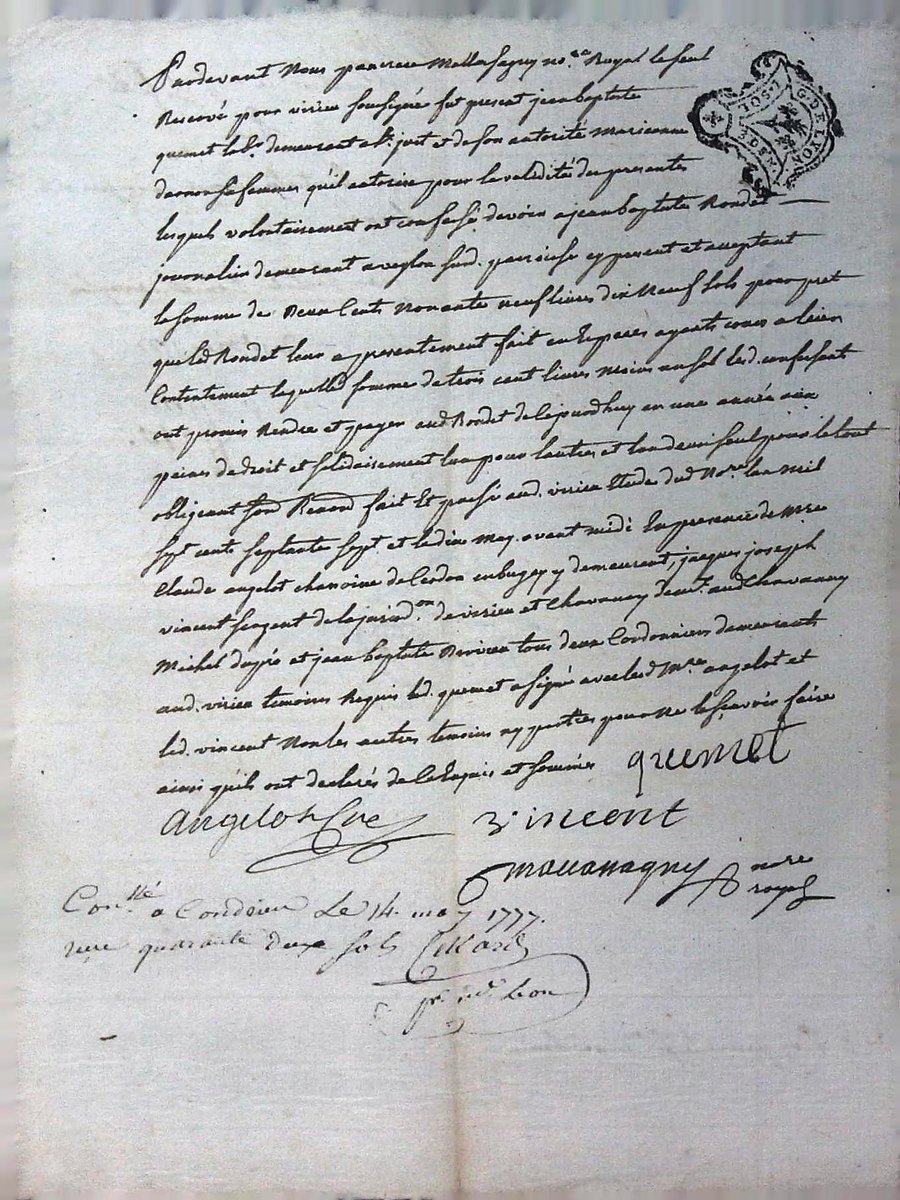 Pardevant Nous pancrace Mallassagny no.re Royal le seul
Reservé pour virieu soussigné fut present jean baptiste
quemet lab.r demeurant a S.t just et de son autorité Marianne
sa femme qu'il autorise pour la validité des presentes
lesquels volontairement ont confessé devoir a jean baptiste Rondet
journalier demeurant a veglon sud. paroisse cy present et acceptant
la somme de Deux Cents Nonante neuf livres dix Neuf sols pour pret
que led Rondet leur a presentement fait en Especes ayants cours a leur
Contentement laquelle somme de trois cent livres moins un sol led. confessant
ont promis Rendre et payer aud Rondet de cejourdhuy en une année aux
peines de droit et solidairement lun pour lautre et lun deux seul pour le tout
obligeant sond Renond fait Et passé aud. virieu Etude dud No.re lan mil
sept cents septante sept et le dix may avant midi En presence de M.re
Claude angelot chanoine de Cerdon en bugey y demeurant, jacques joseph
vincent sergent de la jurisd.on de virieu et Chavanay dem.t aud Chavanay
Michel dupré et jean baptiste Riviere tous deux Cordonniers demeurants
aud. virieu temoins Requis led. quemet a signé avec led M.re angelot et
led. vincent Non les autres temoins ny parties pour Ne le sçavoir faire
ainsi qu'ils ont declarés de ce Enquis et sommés quemet
angelot vincent
Mallassagny n.re
royal
Con.llé a Condrieu Le 14. may 1777.
reçu quarante deux sols
G. DE LYON